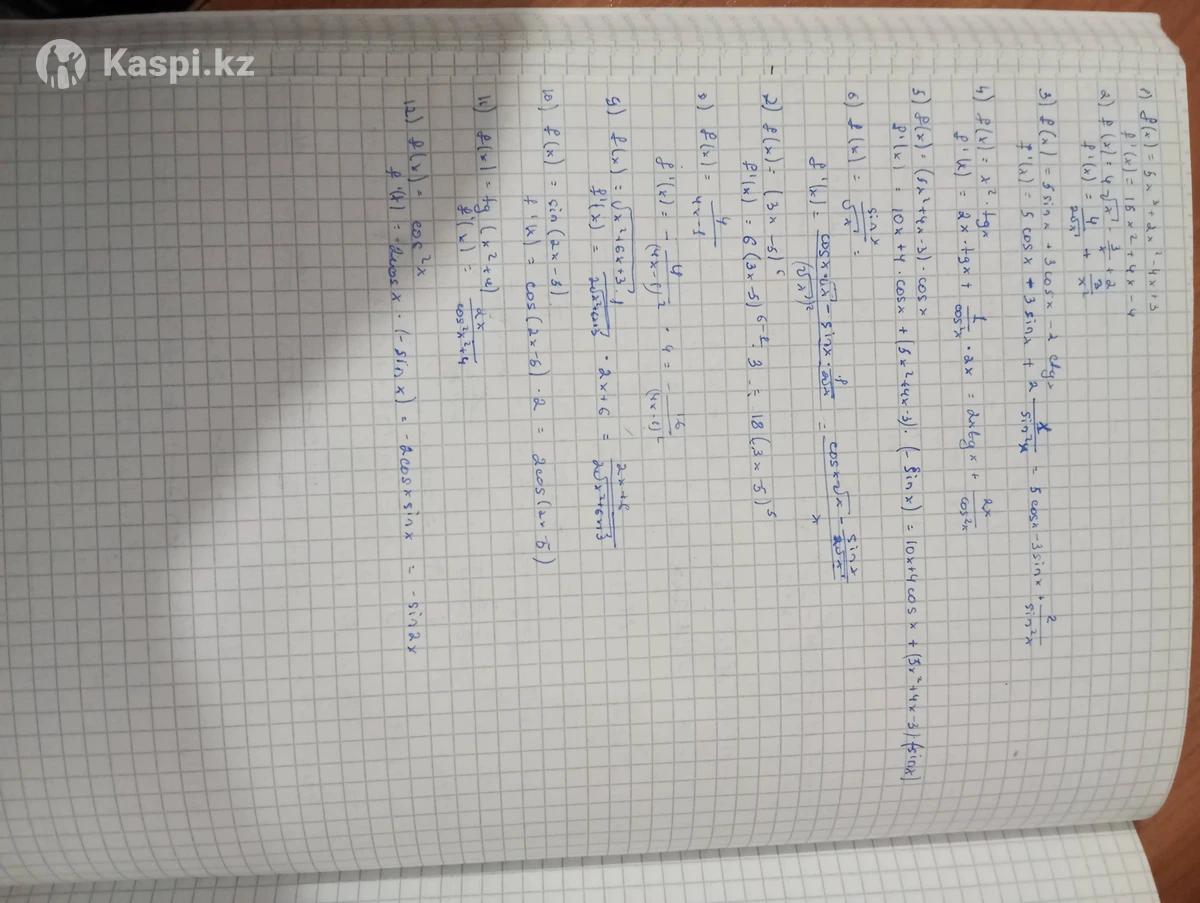 Kaspi.kz
1) f(x) = 5x³ + 2x² - 4x + 3
f'(x) = 15x² + 4x - 4
2) f(x) = 4√x - 3/x + 2
f'(x) = 4/2√x + 3/x²
3) f(x) = 5 sin x + 3 cos x - 2 ctg x
f'(x) = 5 cos x - 3 sin x + 2 1/sin²x = 5 cos x - 3 sin x + 2/sin²x
4) f(x) = x² · tg x
f'(x) = 2x · tg x + 1/cos²x · 2x = 2x tg x + 2x/cos²x
5) f(x) = (5x² + 4x - 3) · cos x
f'(x) = 10x + 4 · cos x + (5x² + 4x - 3) · (- sin x) = 10x + 4 cos x + (5x² + 4x - 3)(- sin x)
6) f(x) = sin x/√x =
f'(x) = cos x · √x - sin x · 1/2√x / (√x)² = cos x √x - sin x/2√x / x
7) f(x) = (3x - 5)⁶
f'(x) = 6 (3x - 5)⁶⁻¹ · 3 = 18 (3x - 5)⁵
8) f(x) = 4/4x - 1
f'(x) = - 4/(4x - 1)² · 4 = - 16/(4x - 1)²
9) f(x) = √x² + 6x + 3
f'(x) = 1/2√x² + 6x + 3 · 2x + 6 = 2x + 6/2√x² + 6x + 3
10) f(x) = sin (2x - 5)
f'(x) = cos (2x - 5) · 2 = 2 cos (2x - 5)
11) f(x) = tg (x² + 4)
f'(x) = 2x/cos² x² + 4
12) f(x) = cos² x
f'(x) = 2 cos x · (- sin x) = - 2 cos x sin x = - sin 2x